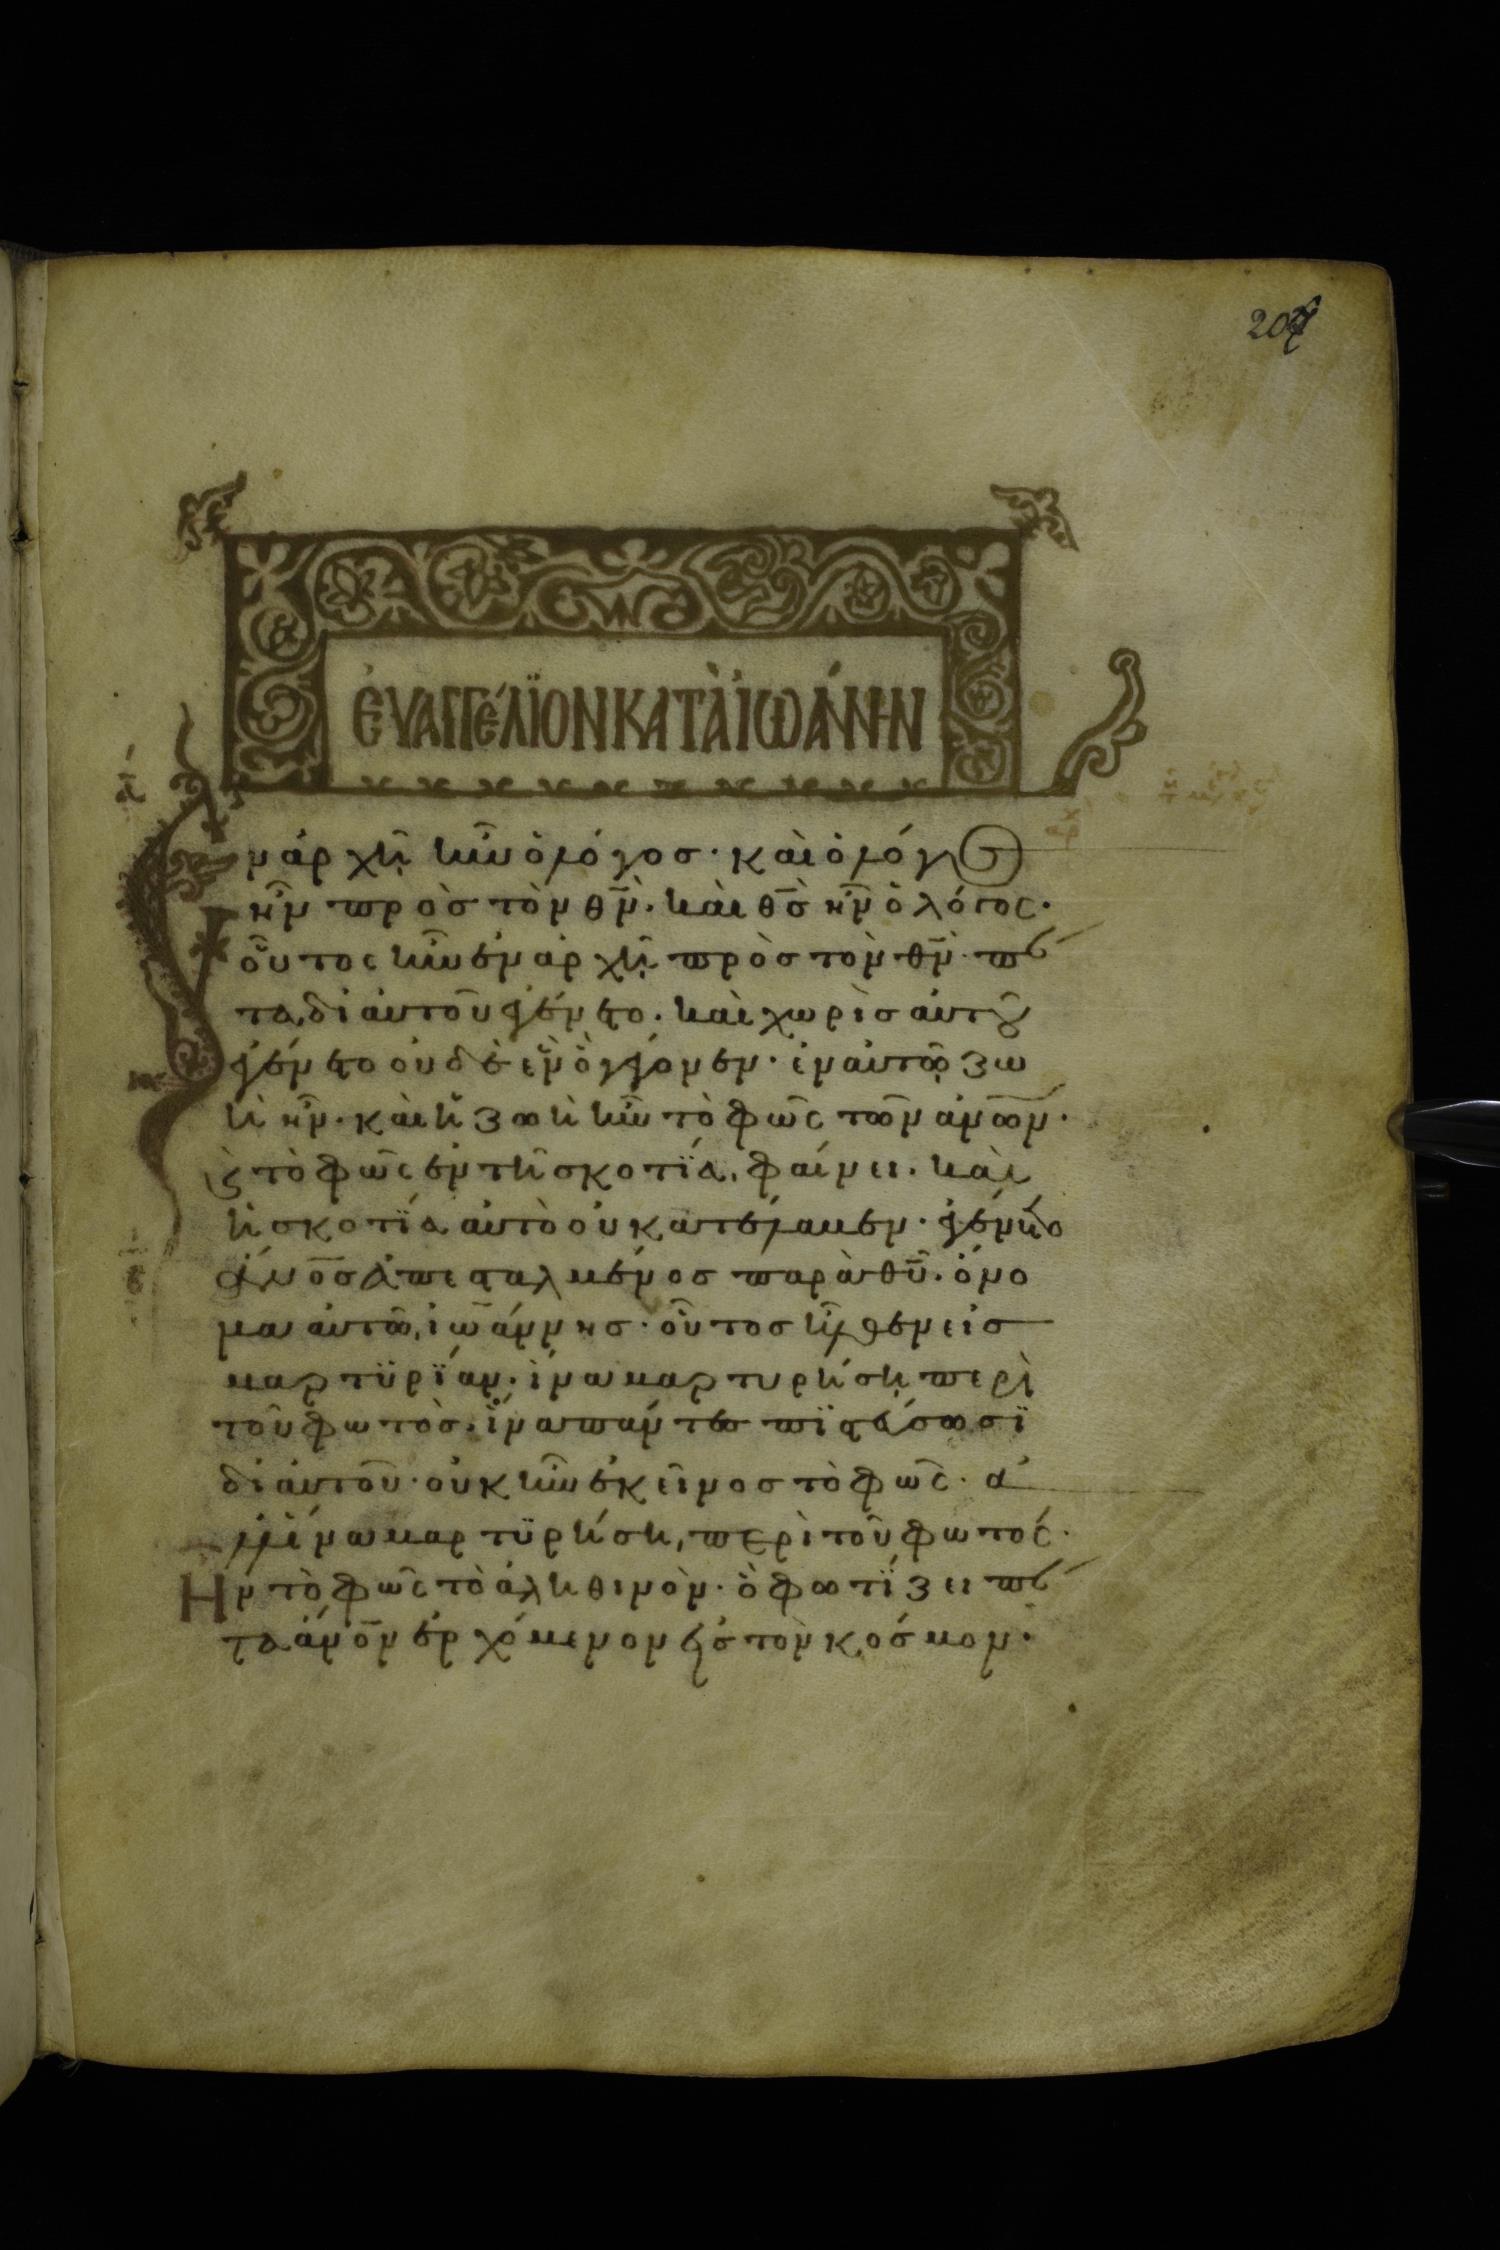 207
ἐυαγγέλϊον κατὰ ἰωάννην
ἐν ἀρχῆ ἦν ὁ λόγος· καὶ ὁ λόγος
ἦν πρὸς τὸν θ̅ν̅· καὶ θ̅ς̅ ἦν ὁ λόγος·
οὗτος ἦν ἐν ἀρχῆ πρὸς τὸν θ̅ν̅· πάν
τα δἰ αυτοῦ ἐγένετο· καὶ χωρὶς αυτοῦ
ἐγένετο ουδὲ ἓν ὃ γέγονεν· ἐν αυτῶ ζω
ὴ ἦν· καὶ ἡ ζωὴ ἦν τὸ φῶς τῶν α̅ν̅ω̅ν̅·
ϗ τὸ φῶς ἐν τῆ σκοτΐα φαίνει· καὶ
ἡ σκοτΐα αυτὸ ου κατέλαβεν· ἐγένετο
ἄ̅ν̅ο̅ς̅ ἀπεσταλμένος παρὰ θ̅υ̅· ὄνο
μα αυτῶ ἰωάννης· οὗτος ἦλθεν εἰς
μαρτϋρΐαν· ἵνα μαρτυρήση περὶ
τοῦ φωτὸς· ἵνα πάντες πϊστεύσωσϊ
δἰ αυτοῦ· ουκ ἦν ἐκεῖνος τὸ φῶς· ἀ
λλ ἵνα μαρτϋρήση περὶ τοῦ φωτός·
Ην τὸ φῶς τὸ ἀληθινὸν· ὃ φωτΐζει πάν
τα ἄ̅ν̅ο̅ν̅ ἐρχόμενον εἰς τὸν κόσμον·